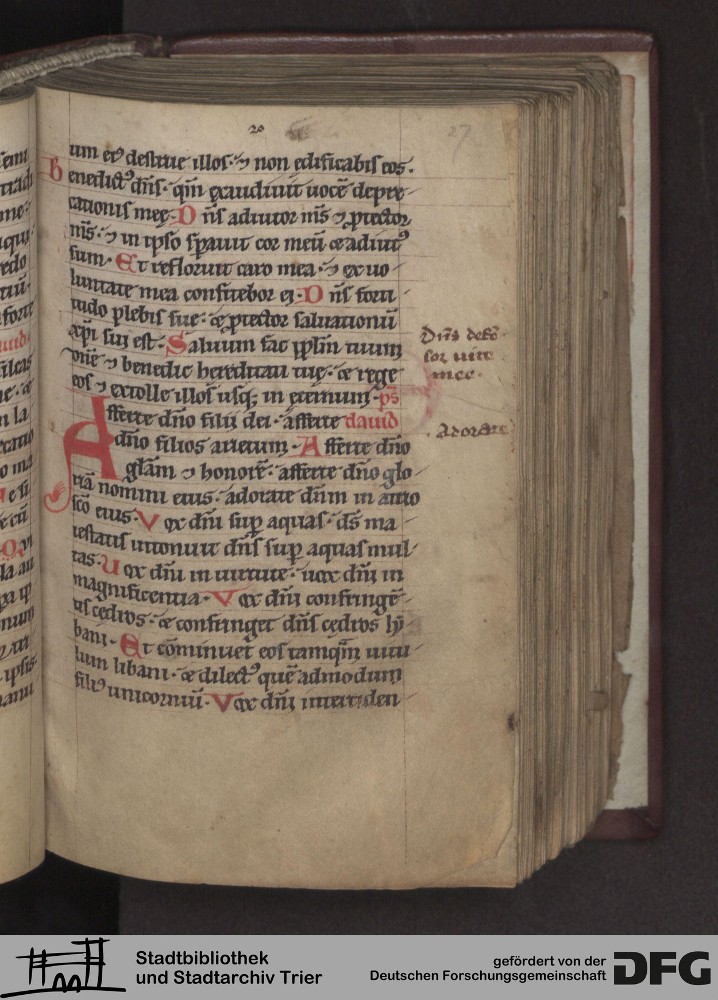 20
27
um eoꝰ destrue illos· ⁊ non edificabis eos·
Benedictꝰ dn̄s· qm̄ exaudiuit uocē depre-
cationis meę· Dn̄s adiutor m̄s ⁊ ꝓtector
m̄s· ⁊ in ipso sꝑauit cor meū ⁊ adiutꝰ
sum· Et refloruit caro mea· ⁊ ex uo-
luntate mea confitebor ei· Dn̄s forti-
tudo plebis sue· ⁊ ꝓtector saluationū
xp̄i sui est· Saluum fac ipl̄m tuum
dn̄e ⁊ benedic hereditati tuę· ⁊ rege
eos ⁊ extolle illos usq; in eternum· ps̄
Afferte dn̄o filii dei· afferte dauid
dn̄o filios arietum· Afferte dn̄o
gl̄am ⁊ honorē· afferte dn̄o glo-
riā nomini eius· adorate dn̄m in atrio
sc̄o eius· Vox dn̄i suꝑ aquas· ds̄ ma-
iestatis intonuit dn̄s suꝑ aquas mul-
tas· Uox dn̄i in uirtute· uox dn̄i in
magnificentia· Vox dn̄i confringē-
tis cedros· ⁊ confringet dn̄s cedros ly-
bani· Et cōminuet eos tamqm̄ uitu-
lum libani· ⁊ dilectꝰ quēadmodum
filiꝰ unicorniū· Vox dn̄i interciden-
Dn̄s defē-
sor uite
mee·
Adorate
Stadtbibliothek
und Stadtarchiv Trier
gefördert von der
Deutschen Forschungsgemeinschaft
DFG